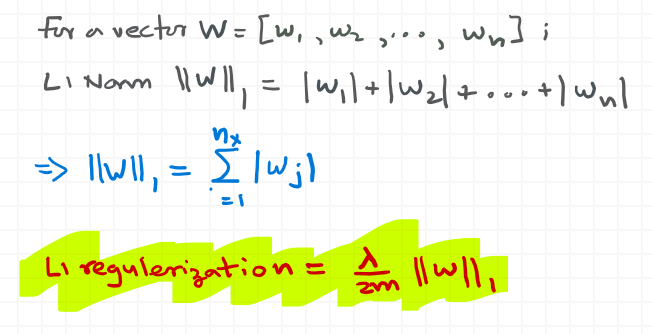 For a vector W = [w₁, w₂, ..., wₙ] ;
L1 Norm ‖W‖₁ = |w₁| + |w₂| + ... + |wₙ|
⇒ ‖W‖₁ = ∑_{.=1}^{nₓ} |wⱼ|
L1 regulerization = λ/2m ‖W‖₁